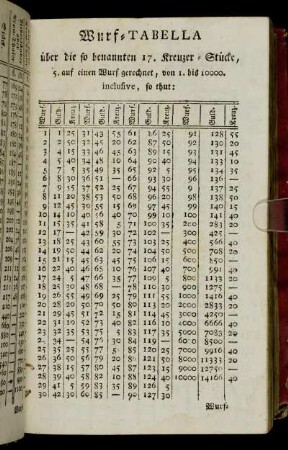 Wurf-TABELLA
über die so benannten 17. Kreuzer-Stücke,
5. auf einen Wurf gerechnet, von 1. bis 10000.
inclusive, so thut:
Wurf. Guld. Kreuz. Wurf. Guld. Kreuz. Wurf. Guld. Kreuz. Wurf. Guld. Kreuz.
1 1 25 31 43 55 61 86 25 91 128 55
2 2 50 32 45 20 62 87 50 92 130 20
3 4 15 33 46 45 63 89 15 93 131 45
4 5 40 34 48 10 64 90 40 94 133 10
5 7 5 35 49 35 65 92 5 95 134 35
6 8 30 36 51 — 66 93 30 96 136 —
7 9 55 37 52 25 67 94 55 97 137 25
8 11 20 38 53 50 68 96 20 98 138 50
9 12 45 39 55 15 69 97 45 99 140 15
10 14 10 40 56 40 70 99 10 100 141 40
11 15 35 41 58 5 71 100 35 200 283 20
12 17 — 42 59 30 72 102 — 300 425 —
13 18 25 43 60 55 73 103 25 400 566 40
14 19 50 44 62 20 74 104 50 500 708 20
15 21 15 45 63 45 75 106 15 600 850 —
16 22 40 46 65 10 76 107 40 700 991 40
17 24 5 47 66 35 77 109 5 800 1133 20
18 25 30 48 68 — 78 110 30 900 1275 —
19 26 55 49 69 25 79 111 55 1000 1416 40
20 28 20 50 70 50 80 113 20 2000 2833 20
21 29 45 51 72 15 81 114 45 3000 4250 —
22 31 10 52 73 40 82 116 10 4000 5666 40
23 32 35 53 75 5 83 117 35 5000 7083 20
24 34 — 54 76 30 84 119 — 6000 8500 —
25 35 25 55 77 55 85 120 25 7000 9916 40
26 36 50 56 79 20 86 121 50 8000 11333 20
27 38 15 57 80 45 87 123 15 9000 12750 —
28 39 40 58 82 10 88 124 40 10000 14166 40
29 41 5 59 83 35 89 126 5
30 42 30 60 85 — 90 127 30
Wurf-